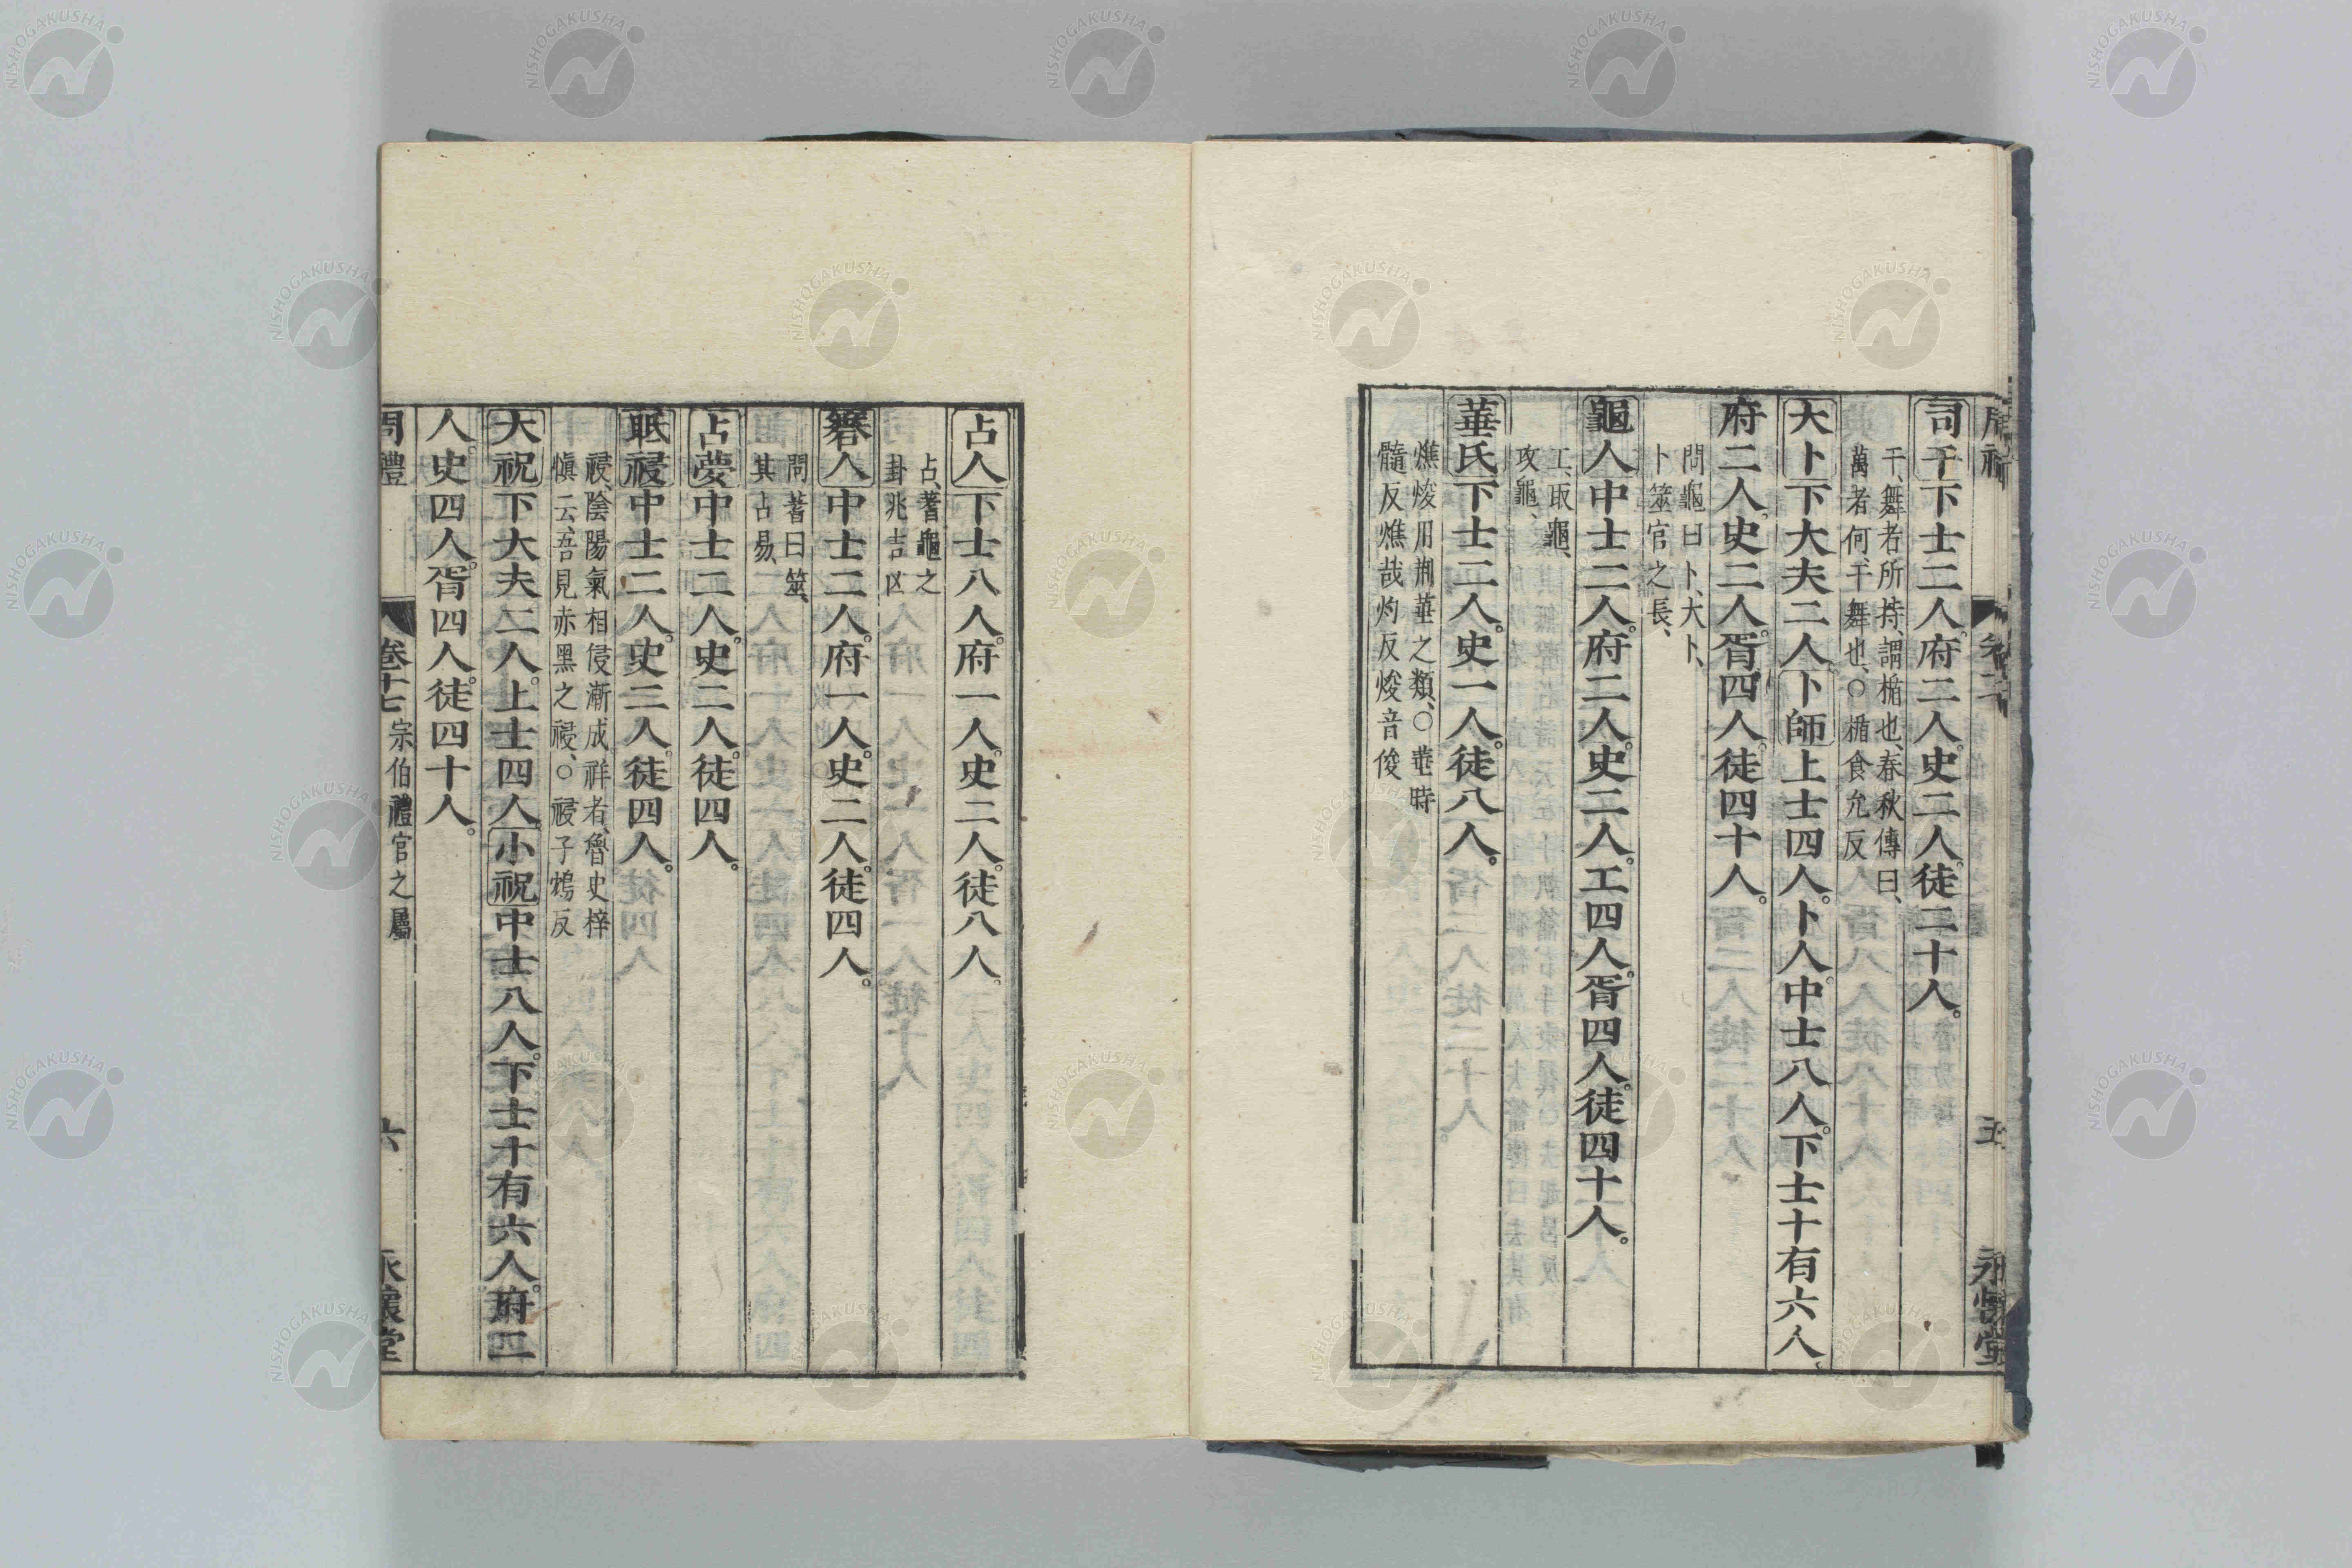 司干下士二人。府二人。史二人。徒二十人。
干、舞者所持、謂楯也、春秋傳曰、
萬者何、干舞也、○楯食允反
大卜下大夫二人。卜師上士四人。卜人。中士八人。下士十有六人。
府二人。史二人。胥四人。徒四十人。
問龜曰卜、大卜、
卜筮官之長、
龜人中士二人。府二人。史二人。工四人。胥四人。徒四十人。
工、取龜、
攻龜、
菙氏下士二人。史一人。徒八人。
燋焌用荆菙之類、○菙時
髓反燋哉灼反焌音俊
五
永懷堂
占人下士八人。府一人。史二人。徒八人。
占、蓍龜之
卦兆吉凶
簭人中士二人。府一人。史二人。徒四人。
問蓍曰筮、
其占易、
占夢中士二人。史二人。徒四人。
眡祲中士二人。史二人。徒四人。
祲、陰陽氣相侵漸成祥者、魯史梓
愼云、吾見赤黑之祲、○祲子鴆反
大祝下大夫二人。上士四人。小祝中士八人。下士十有六人。府二
人。史四人。胥四人。徒四十人。
周禮
卷十七 宗伯禮官之屬
六
永懷堂
NISHOGAKUSHA